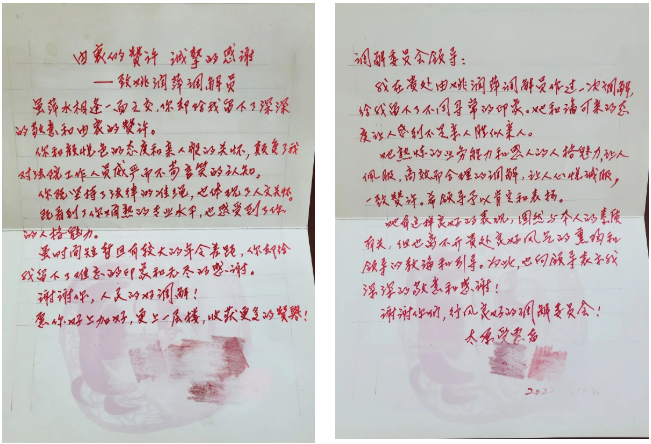 由衷的赞许 诚挚的感谢
——致姚润萍调解员
虽萍水相逢一面之交，你却给我留下了深深
的敬意和由衷的赞许。
你和颜悦色的态度和亲人般的关怀，颠复了我
对法院工作人员威严而不苟言笑的认知。
你既坚持了法律的准绳，也体现了人文关怀。
既看到了你娴熟的专业水平，也感受到了你
的人格魅力。
虽时间短暂且有较大的年令差距，你却给
我留下了难忘的印象和无尽的感谢。
谢谢你，人民的好调解！
愿你好上加好，更上一层楼，收获更多的赞誉！
调解委员会领导：
我在贵处由姚润萍调解员作过一次调解，
给我留下了不同寻常的印象。她和谒可亲的态
度让人感到不是亲人胜似亲人。
她熟练的业务能力和感人的人格魅力，让人
佩服，高效而合理的调解，让人心悦诚服，
一致赞许。希领导予以肯定和表扬。
她有这样良好的表现，固然与本人的素质
有关，但也离不开贵处良好风气的熏陶和
领导的教诲和引导。为此，也向领导表示我
深深的敬意和感谢！
谢谢你们，行风良好的调解委员会！